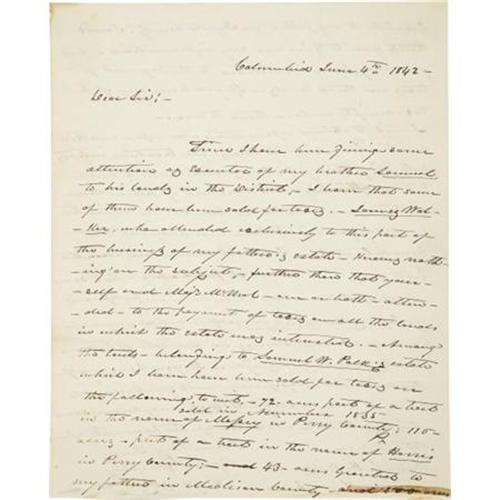 Columbia June 4th 1842 -
Dear Sir:-
Since I have been giving some
attention as executor of my brother Samuel,
to his lands in the District, - I learn that some
of them have been sold for taxes. - James Wal-
-ker, who attended exclusively to this part of
the business of my father's estate - knows noth-
-ing on the subject, - further than that your-
-self and Maj. McNeal - one or both - atten-
-ded - to the payment of taxes on all the lands
in which the estate was interested. - Among
the lands - belonging to Samuel W. Polk's estate
which I learn have been sold for taxes are
the following to wit, - 72 - acres part of a tract
sold in November 1835
in the name of in Perry County; 110 -
acres - part of a tract in the name of Harris
in Perry County; - and 43 - acres granted to
my father in Madison County